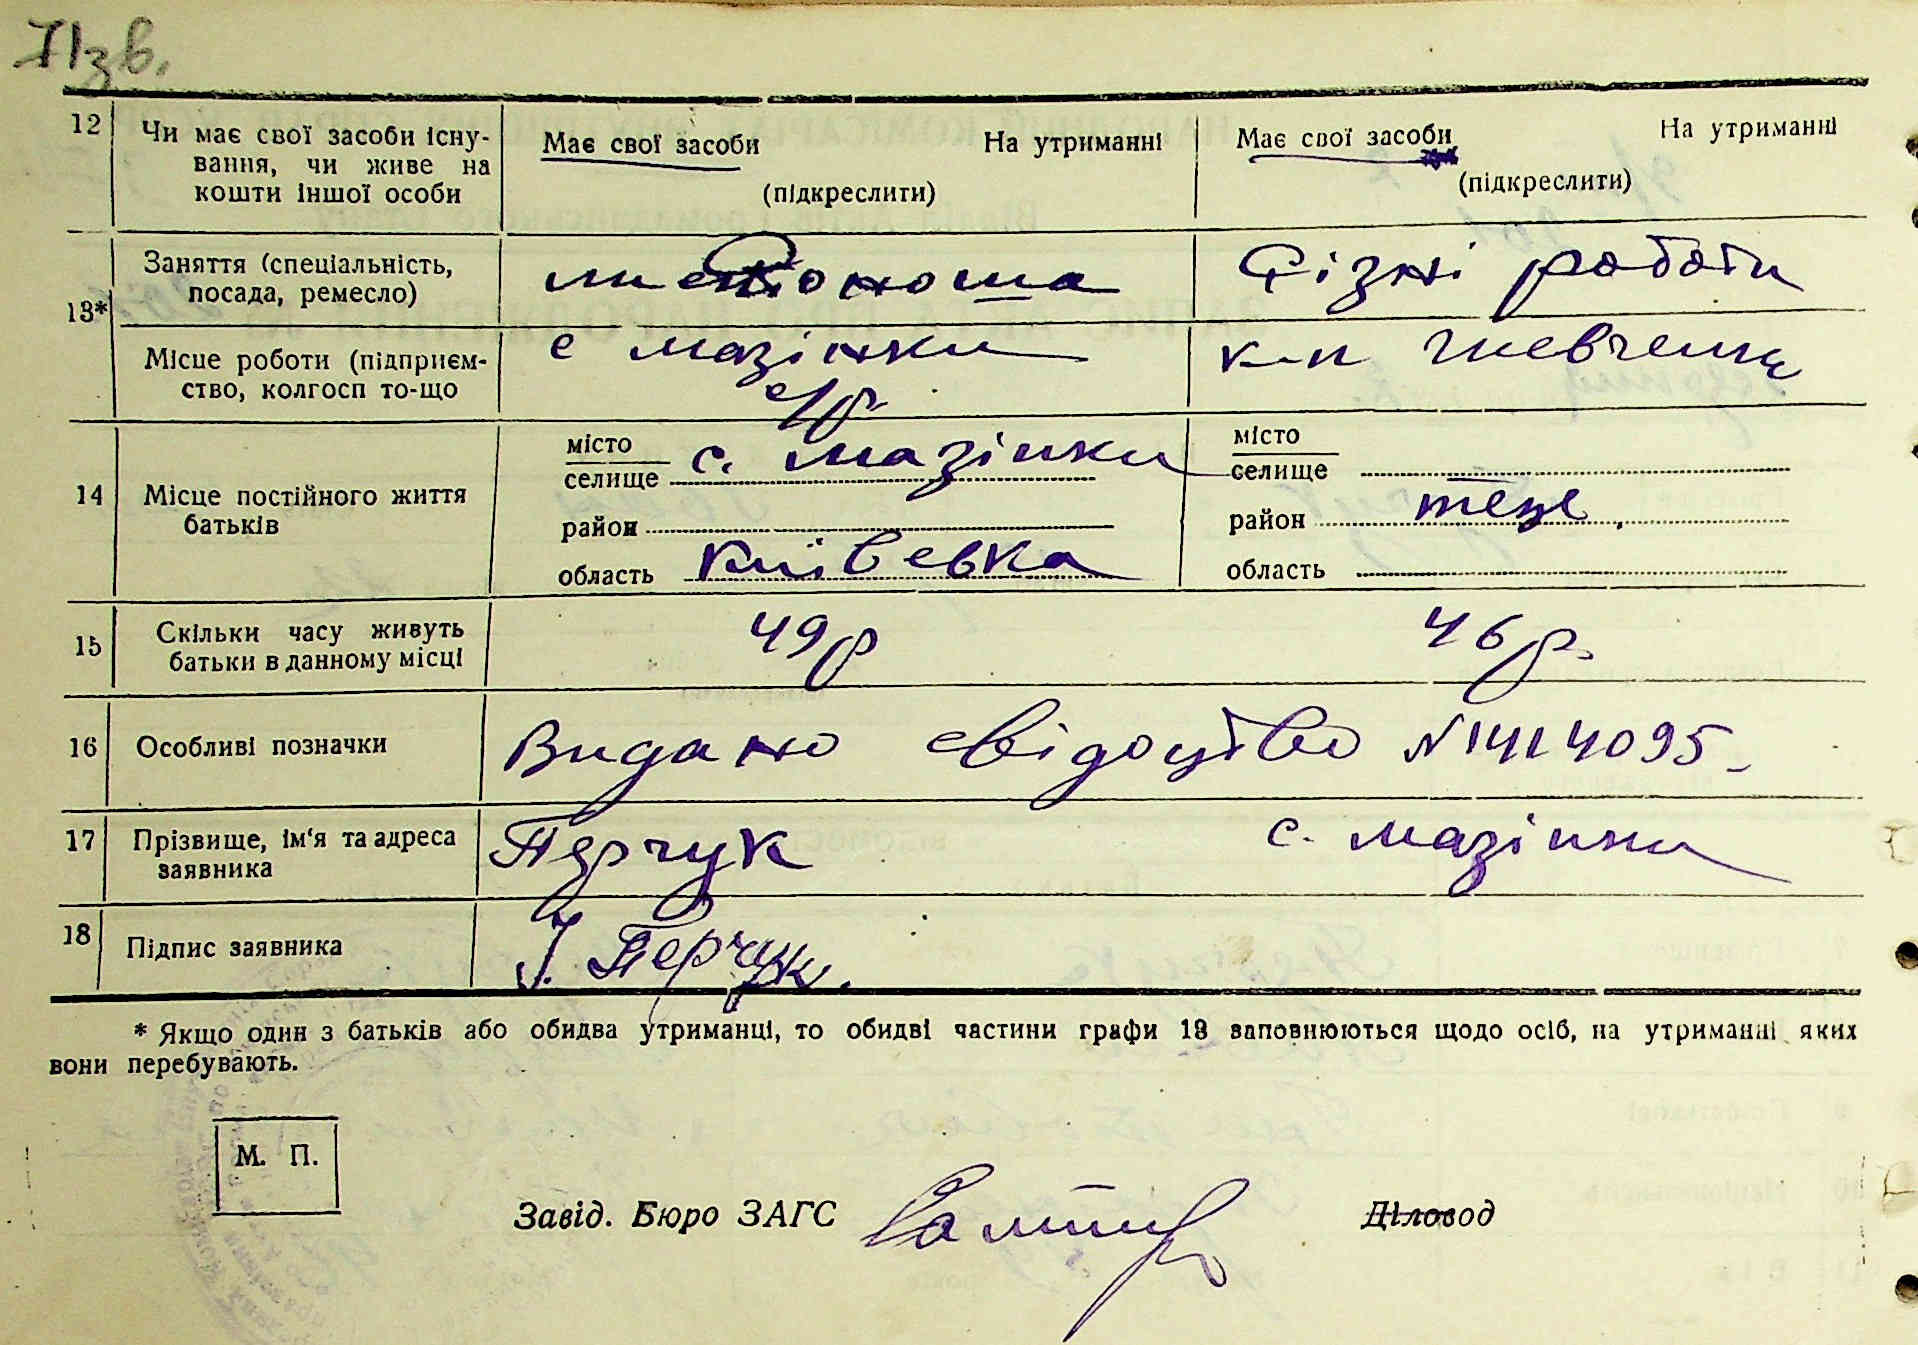 71зв.
12 Чи має свої засоби існування, чи живе на кошти іншої особи
Має свої засоби На утриманні (підкреслити)
Має свої засоби На утриманні (підкреслити)
13* Заняття (спеціальність, посада, ремесло)
Фізні работи
Місце роботи (підприємство, колгосп то-що
с мазінки с/р
к-п Шевченка
14 Місце постійного життя батьків
місто
селище с. мазінки
район
область Київська
місто
селище
район теж
область
15 Скільки часу живуть батьки в данному місці
49р
46р.
16 Особливі позначки
Видано свідоцтво №1414095
17 Прізвище, ім'я та адреса заявника
Перчук с. мазінки
18 Підпис заявника
Перчук.
* Якщо один з батьків або обидва утриманці, то обидві частини графи 13 заповнюються щодо осіб, на утриманні яких
вони перебувають.
М. П.
Завід. Бюро ЗАГС Діловод